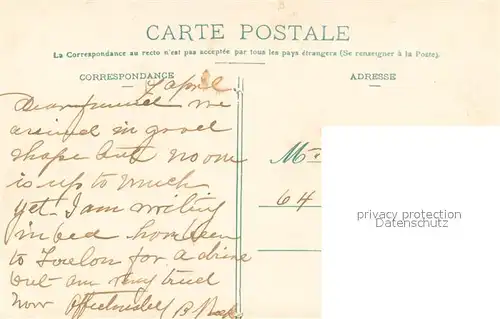 CARTE POSTALE
La Correspondance au recto n'est pas acceptée par tous les pays étrangers (Se renseigner à la Poste).
CORRESPONDANCE
ADRESSE
7 april
Dear friend we
arrived in good
shape but no one
is up to much
yet. I am writing
in bed have been
to Toulon for a drive
but am very tired
now Affectionately B
M
64
privacy protection
Datenschutz